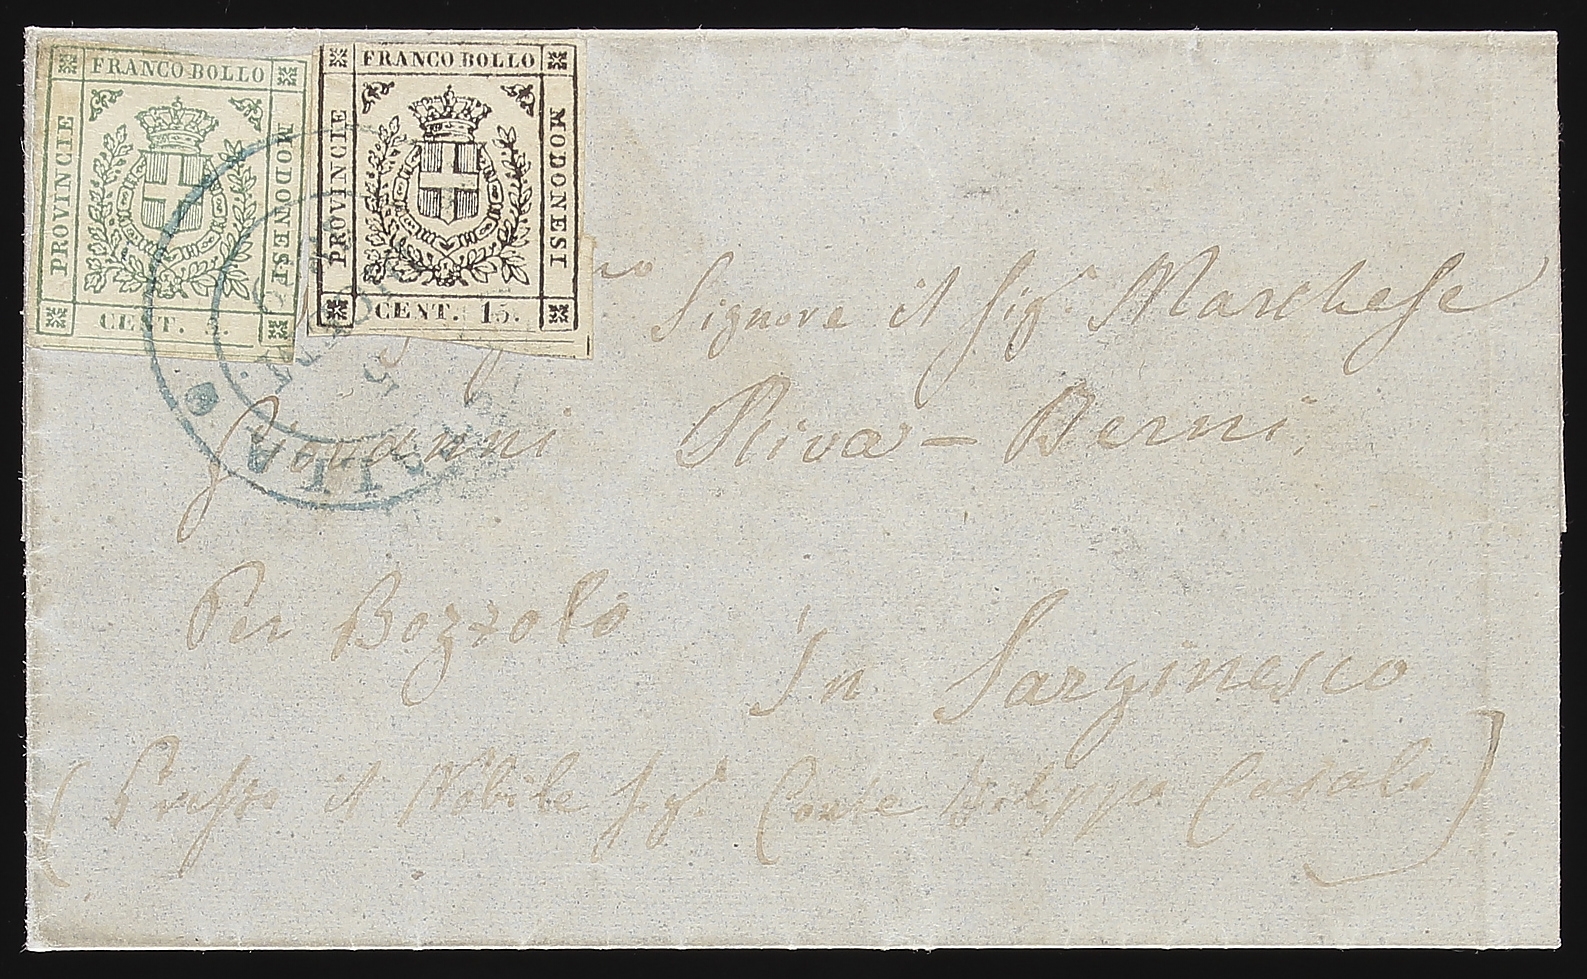 FRANCO BOLLO
PROVINCIE
MODONESI
CENT. 5.
FRANCO BOLLO
PROVINCIE
MODONESI
CENT. 15.
Signore il Sigr Marchese
Giovanni Riva - Berni
Per Bozzolo
In Sarginesco
( Presso il Nobile Sigr Conte Filippo Casali )